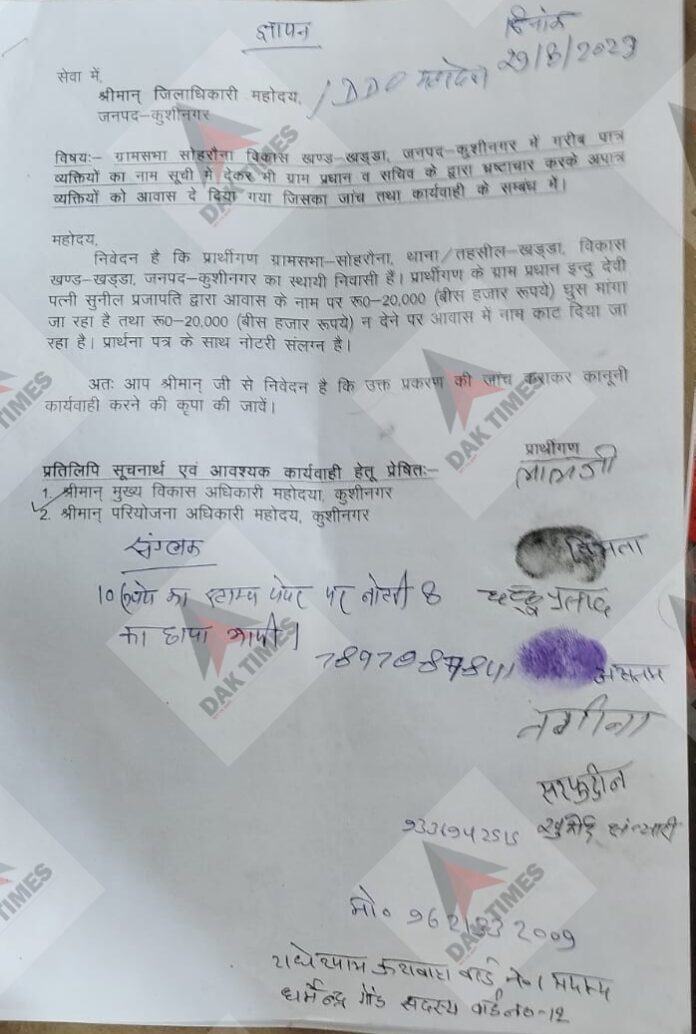 ज्ञापन
दिनांक
29/8/2023
सेवा में,
श्रीमान् जिलाधिकारी महोदय, / DDO महोदय
जनपद–कुशीनगर
विषयः– ग्रामसभा सोहरौना विकास खण्ड–खड्डा, जनपद–कुशीनगर में गरीब पात्र
व्यक्तियों का नाम सूची में देकर भी ग्राम प्रधान व सचिव के द्वारा भ्रष्टाचार करके अपात्र
व्यक्तियों को आवास दे दिया गया जिसका जांच तथा कार्यवाही के सम्बंध में।
महोदय,
निवेदन है कि प्रार्थीगण ग्रामसभा–सोहरौना, थाना/तहसील–खड्डा, विकास
खण्ड–खड्डा, जनपद–कुशीनगर का स्थायी निवासी हैं। प्रार्थीगण के ग्राम प्रधान इन्दु देवी
पत्नी सुनील प्रजापति द्वारा आवास के नाम पर रू0–20,000 (बीस हजार रूपये) घुस मांगा
जा रहा है तथा रू0–20,000 (बीस हजार रूपये) न देने पर आवास में नाम काट दिया जा
रहा है। प्रार्थना पत्र के साथ नोटरी संलग्न है।
अतः आप श्रीमान् जी से निवेदन है कि उक्त प्रकरण की जांच कराकर कानूनी
कार्यवाही करने की कृपा की जावें।
प्रार्थीगण
लालजी
प्रतिलिपि सूचनार्थ एवं आवश्यक कार्यवाही हेतू प्रेषितः–
1. श्रीमान् मुख्य विकास अधिकारी महोदया, कुशीनगर
2. श्रीमान् परियोजना अधिकारी महोदय, कुशीनगर
संग्लक
10 रुपये का स्टाम्प पेपर पर नोटरी 8
का छाया कापी।
प्रसाद
नगीना
सरफुद्दीन
9331942515
मो० 9621832009
राधेश्याम कुशवाहा वार्ड नं०1 सदस्य
धर्मेन्द्र गोंड सदस्य वार्ड नं०-12
DAK TIMES
DAK TIMES
DAK TIMES
DAK TIMES
DAK TIMES
DAK TIMES